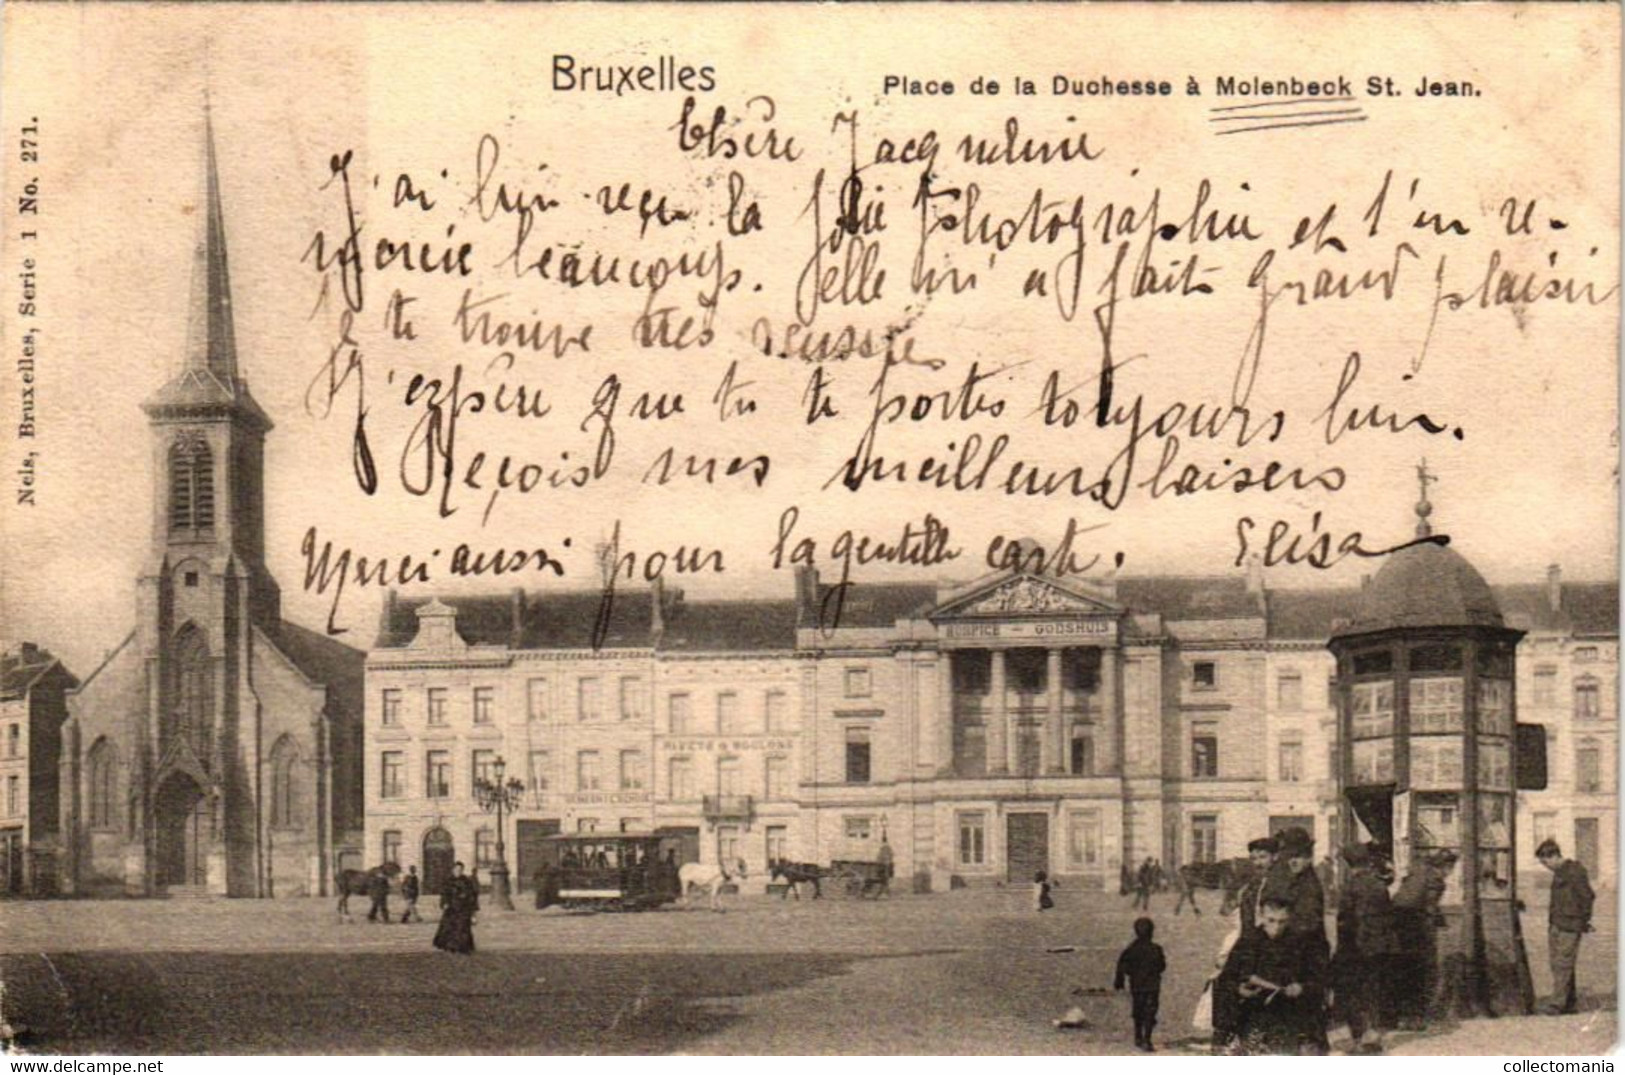 Bruxelles
Place de la Duchesse à Molenbeck St. Jean.
Nels, Bruxelles, Serie 1 No. 271.
Chère Jacqueline
J'ai bien reçu la jolie photographie et t'en re-
mercie beaucoup. Elle m'a fait grand plaisir
Je te trouve très réussie
J'espère que tu te portes toujours bien.
Reçois mes meilleurs baisers
Merci aussi pour la gentille carte. Elisa
HOSPICE — GODSHUIS
RIVETS & BOULONS
collectomania